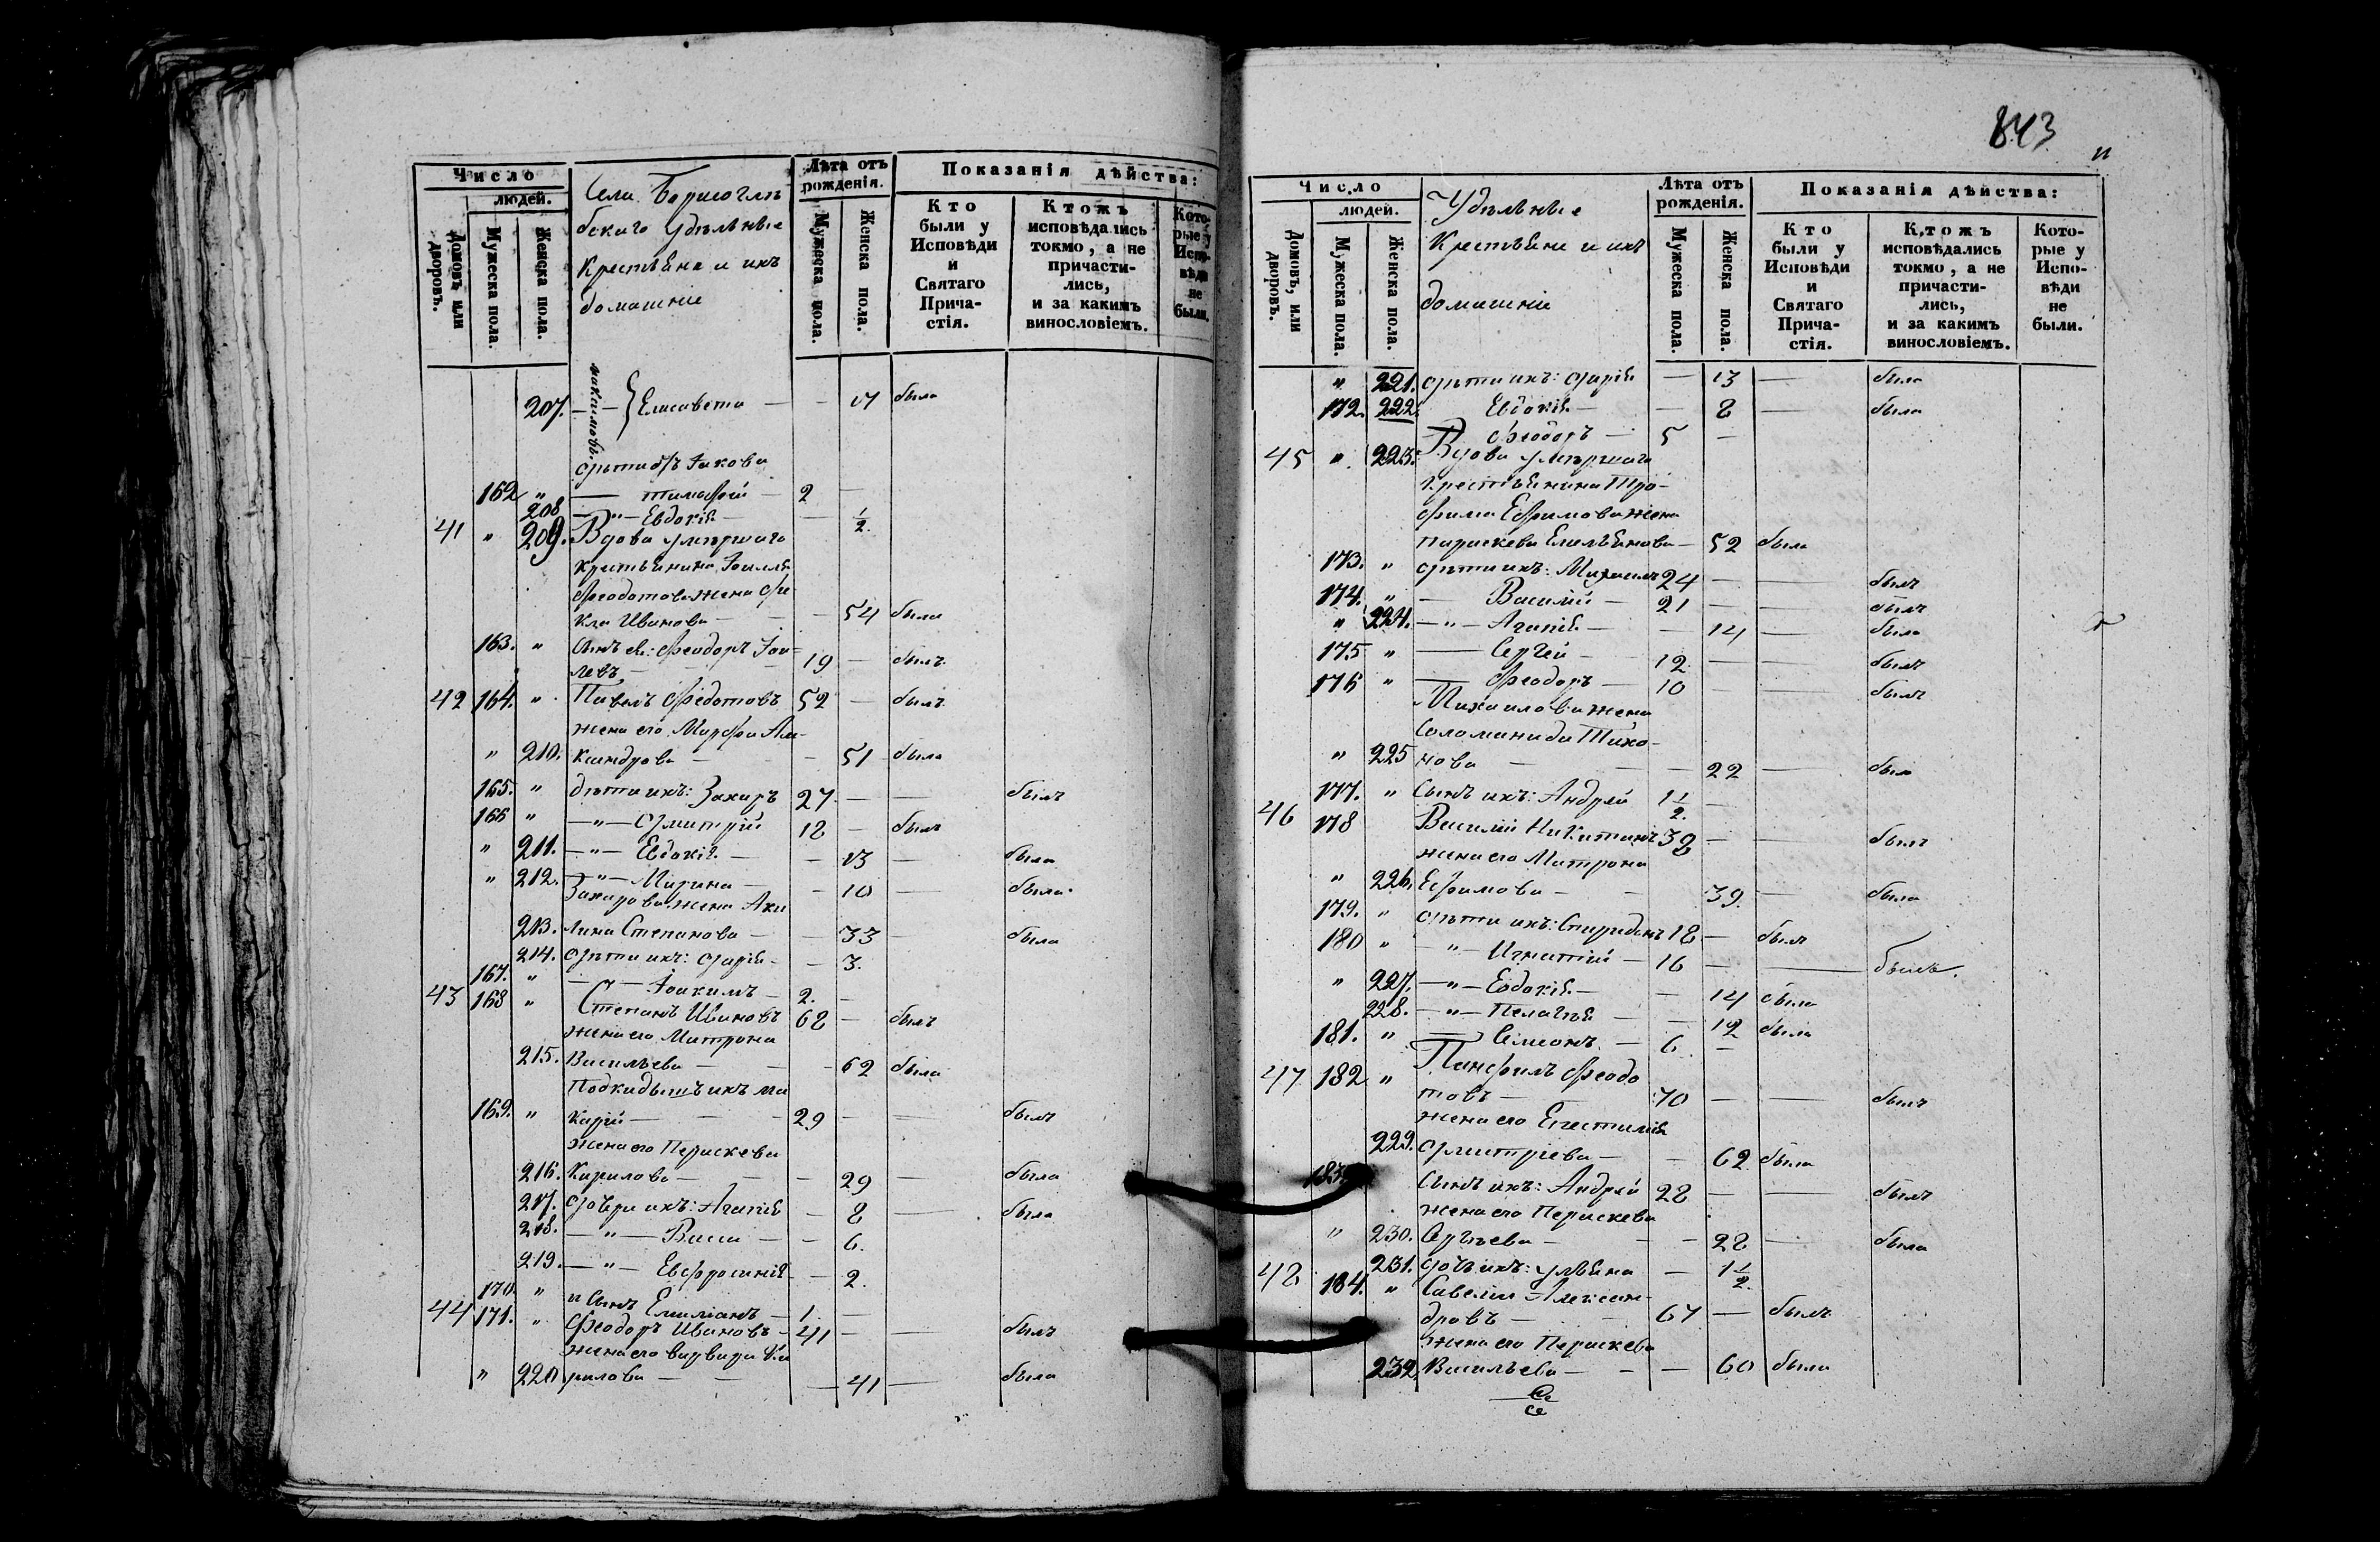 Число
людей.
Домовъ или дворовъ.
Мужеска пола.
Женска пола.
Села Борисоглѣб
скаго Удѣльные
Крестьяне и ихъ
домашніе
Лѣта отъ рожденія.
Мужеска пола.
Женска пола.
Показанія дѣйства:
Кто были у Исповѣди и Святаго Прича- стія.
Ктожъ исповѣдались токмо, а не причасти- лись, и за какимъ винословіемъ.
Кото- рые у Испо- вѣди не были.
207. — — Максимовы { Елисавета — — 17 была
Дѣти бр. Іакова
162 " — Тимоѳей — 2 —
208 — " — Евдокія — — 1/2.
41 " 209. Вдова умершаго
крестьянина Іоилля
Ѳеодотова жена Ѳе
кла Иванова — — 54 была
163. " Сынъ ея: Ѳеодоръ Іои-
левъ — 19 — былъ
42 164. " Павелъ Ѳедотовъ 52 — былъ
жена его Марѳа Але-
" 210. ксандрова — — 51 была
165. " дѣти ихъ: Захаръ 27 — — былъ
166 " — " — Дмитрій 18 — былъ
" 211. — " — Евдокія — — 13 — была
" 212. — " — Марина — — 10 — была
Захарова жена Аки
213. лина Степанова — — 33 — была
214. Дѣти ихъ: Дарія — — 3.
167. " — — Іоакимъ — 2. —
43 168 " Степанъ Ивановъ 68 — былъ
жена его Матрона
215. Васильева — — 62 была
Подкидышъ ихъ Ма
169. " карій — 29 — — былъ
жена его Параскева
216. Кирилова — — 29 — была
217. Дочери ихъ: Агапія — 8 — была
218. — " — Васса — — 6.
219. — " — Евфросинія — 2.
170. " и Сынъ Емиліанъ — 1. —
44 171. " Ѳеодоръ Ивановъ — 41 — — былъ
жена его Варвара Ки
" 220 рилова — — 41 — была
843
Число
людей.
Домовъ, или дворовъ.
Мужеска пола.
Женска пола.
Удѣльные
Крестьяне и ихъ
домашніе
Лѣта отъ рожденія.
Мужеска пола.
Женска пола.
Показанія дѣйства:
Кто были у Исповѣди и Святаго Прича- стія.
Ктожъ исповѣдались токмо, а не причасти- лись, и за какимъ винословіемъ.
Кото- рые у Испо- вѣди не были.
" 221. Дѣти ихъ: Дарія — 13 — была
172. 222. Евдокія — — 8 — была
Ѳеодоръ — 5 —
45 " 223. Вдова умершаго
крестьянина Тро-
фима Ефимова жена
Параскева Емельянова — 52 была
173. " Дѣти ихъ: Михаилъ 24 — — былъ
174. " — Василій — 21 — — былъ
" 224. — " — Агапія — — 14 — была
175 " — Сергей — 12. — — былъ
176 " — Ѳеодоръ — 10 — — былъ
Михаилова жена
Соломанида Тихо-
" 225 нова — — 22 — была
177. " Сынъ ихъ: Андрей 1 1/2. —
46 178 Василій Никитинъ 38 — — былъ
жена его Матрона
" 226. Ефимова — — 39. — была
179. " Дѣти ихъ: Спиридонъ 18 — былъ
180 " — " — Игнатій — 16 — — былъ.
" 227. — " — Евдокія — — 14 была
228. — " — Пелагія — — 12 была
181. " — Симеонъ — 6 —
47 182 " Панфилъ Ѳеодо
товъ — 70 — — былъ
жена его Епистимія
229. Дмитріева — — 62 была
183. Сынъ ихъ: Андрей 28 — — былъ
жена его Параскева
" 230. Сергѣева — — 28 — была
231. дочь ихъ: Ульяна — 1 1/2.
48 184. " Савелій Алексан-
дровъ — 67 — былъ
жена его Параскева
232. Васильева — — 60 была